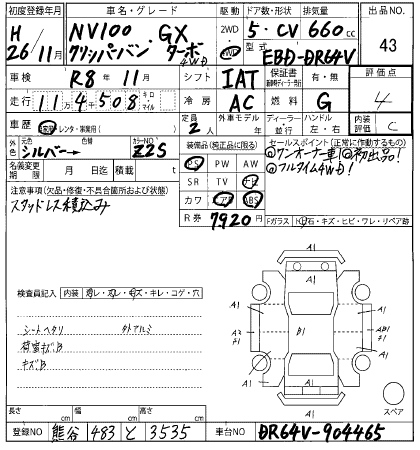 初度登録年月 車名・グレード 駆動 ドア数・形状 排気量 出品NO.
H 26/11月 NV100 GX 2WD 4WD 5・CV 660cc 43
クリッパーバン ターボ 4WD 型式 EBD-DR64V
車検 R8年11月 シフト IAT 保証書 有・無 評価点
走行 114508 キロ マイル 冷房 AC 燃料 G 4
車歴 自家 レンタ・事業用( ) 定員 2人 外車モデル 年 ディーラー 並行 ハンドル 左・右 内装評価 C
外色 元色 シルバー→ 色替 カラーNO Z2S 装備品(純正品に限る) セールスポイント(正常に作動するもの)
名義変更期限 月 日迄 積載 t PS PW AW ◎ワンオーナー車!◎初出品!
注意事項(欠品・修復・不具合箇所および状態) SR TV ナビ ◎フルタイム4WD!
スタッドレス積込み カワ エアB ABS
R券 7920円 Fガラス ト石・キズ・ヒビ・ワレ・リペア跡
検査員記入 内装 ヨゴレ・スレ・キズ・キレ・コゲ・穴
シートヘタリ 外アルミ
荷室キズB
キズB
A1
A1 A1
A1 A1
B1
A1 A1
A1
スペア
長さ cm 幅 cm 高さ cm
登録NO 熊谷 483 と 3535 車台NO DR64V-904465